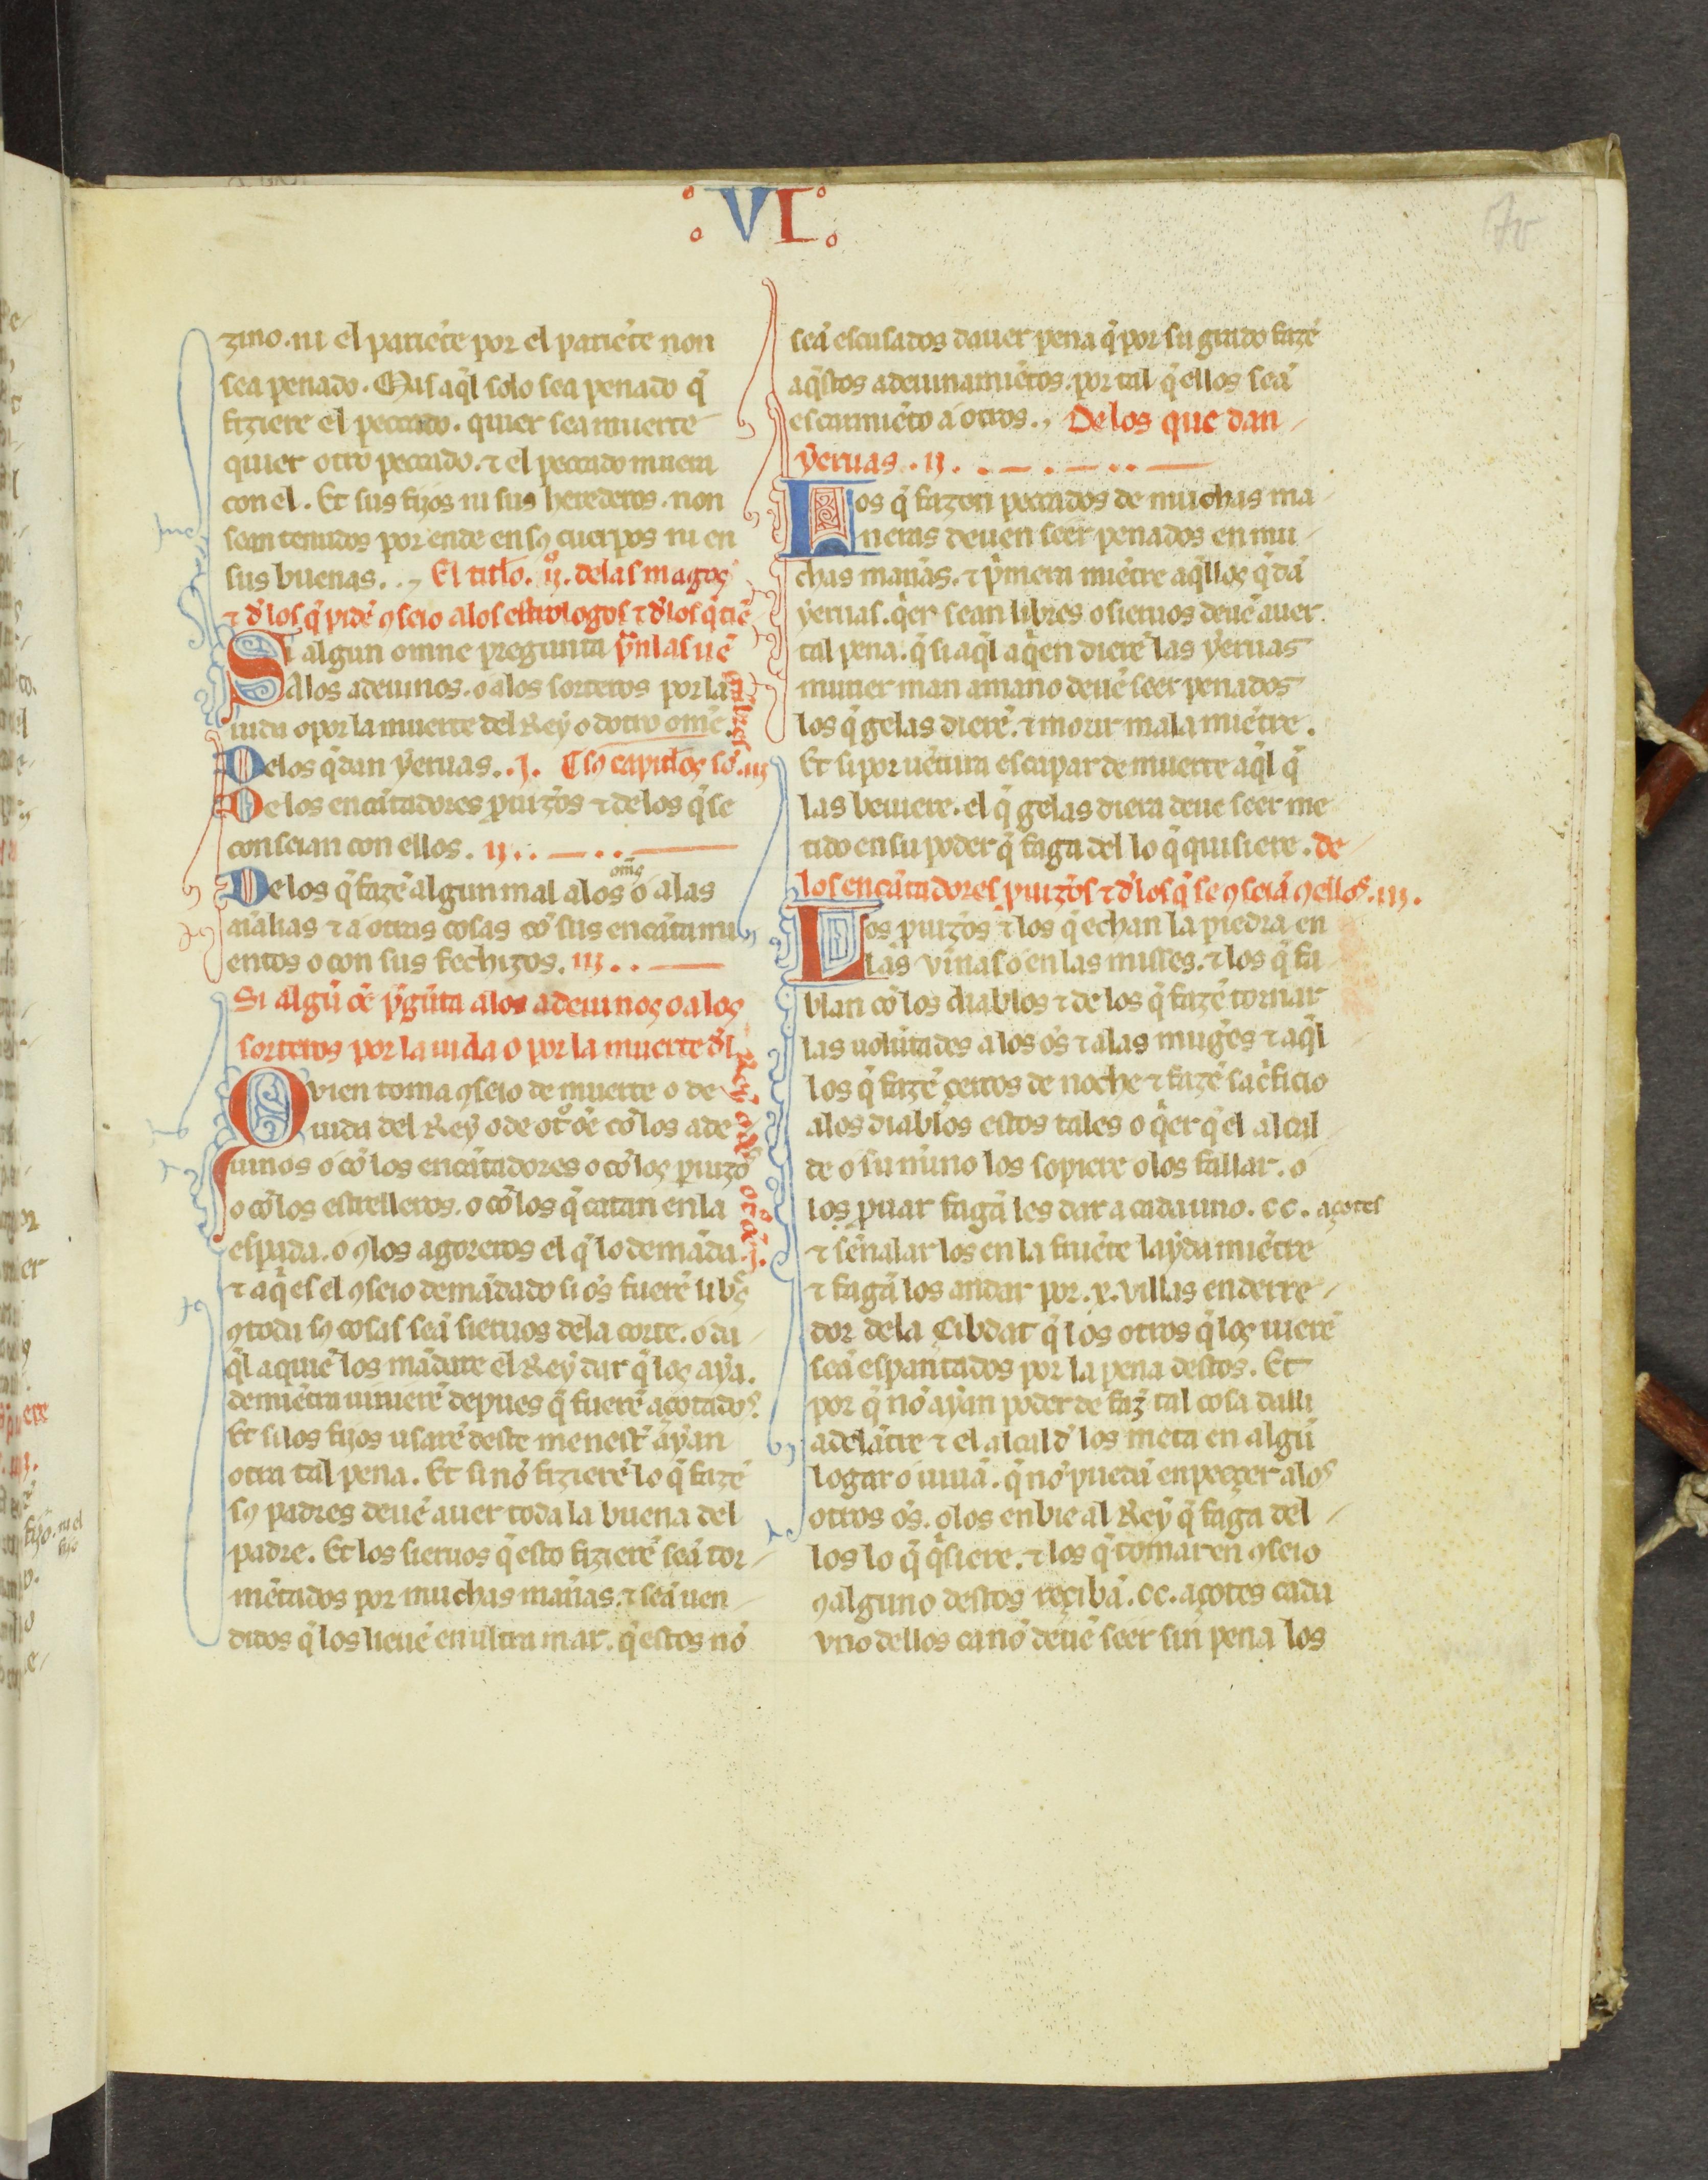 VI
zino. ni el pariẽte por el pariẽte non
sea penado. Mas aq̃l solo sea penado q̃
fiziere el peccado. quier sea muerte
quier otro peccado. ⁊ el peccado muera
con el. Et sus fijos ni sus herederos. non
sean tenudos por ende en sꝯ cuerpos ni en
sus buenas. El titlo. ij. delas magos
⁊ d̃los q̃ pidẽ ꝯseio alos estrologos ⁊ d̃los q̃ tiẽ
Si algun omne pregunta
Alos adeuinos. o alos sorteros por la
uida o por la muerte del Rey o dotro omẽ.
Delos q̃ dan yeruas. .j. sꝯ capitlos sõ .iij
De los encãtadores ꝓuizos ⁊ delos q̃ se
conseian con ellos. ij.
De los q̃ fazẽ algun mal alos omẽs o alas
aĩalias ⁊ a otras cosas cõ sus encãtami
entos o con sus fechizos. iij.
Si algũ oẽ p̃gũta alos adeuinos o alos
sorteros por la uida o por la muerte d̃l
Quien toma ꝯseio de muerte o de
uida del Rey o de otro oẽ cõ los ade
uinos o cõ los encãtadores o cõ los ꝓuizos
o cõ los estrelleros. o cõ los q̃ catan en la
espada. o ꝯ los agoreros el q̃ lo demãda. j.
⁊ aq̃ es el ꝯseio demãdado si os fuerẽ libres
ꝯ toda sꝯ cosas seã sieruos dela corte. o da
q̃l a quiẽ los mãdare el Rey dar q̃ los aya.
demiẽtra uiuierẽ depues q̃ fuerẽ açotados.
Et si los fijos usarẽ deste menester ayan
otra tal pena. Et si nõ fizierẽ lo q̃ fazẽ
sꝯ padres deuẽ auer toda la buena del
padre. Et los sieruos q̃ esto fizierẽ seã tor
mẽtados por muchas mañas. ⁊ seã uen
didos q̃ los lieuẽ en ultra mar. q̃ estos nõ
seã escusados dauer pena q̃ por su grado fazẽ
aq̃stos adeuinamiẽtos. por tal q̃ ellos seã
escarmiẽto a otros. De los que dan
yeruas. ij.
Los q̃ fazen peccados de muchas ma
neras deuen seer penados en mu
chas manas. ⁊ p̃mera miẽtre aq̃llos q̃ dã
yeruas. q̃er sean libres o sieruos deuẽ auer
tal pena. q̃ si aq̃l a q̃en dierẽ las yeruas
murier man a mano deuẽ seer penados
los q̃ gelas dierẽ. ⁊ morir mala miẽtre.
Et si por uẽtura escapar de muerte aq̃l q̃
las beuiere. el q̃ gelas diera deue seer me
tido en su poder q̃ faga del lo q̃ quisiere. de
los encãtadores ꝓuizos ⁊ d̃los q̃ se ꝯseiã ꝯellos. iij.
Los ꝓuizos ⁊ los q̃ echan la piedra en
las vinas o en las misses. ⁊ los q̃ fa
blan cõ los diablos ⁊ de los q̃ fazẽ tornar
las uolũtades a los os ⁊ alas mugẽs ⁊ aq̃l
los q̃ fazẽ çercos de noche ⁊ fazẽ sac̃ficio
alos diablos estos tales o q̃er q̃ el alcal
de o su m̃ino los sopiere o los fallar. o
los ꝓuar fagã les dar a cada uno. cc. açotes
⁊ sẽnalar los en la fruẽte layda miẽtre
⁊ fagã los andar por. x. villas en derre
dor dela Cibdat q̃ los otros q̃ los uierẽ
seã espantados por la pena destos. Et
por q̃ nõ ayan poder de faz̃ tal cosa dalli
adelãtre ⁊ el alcald̃ los meta en algũ
logar o uiuã. q̃ nõ puedã enpeeçer alos
otros os. o los enbie al Rey q̃ faga del
los lo q̃ q̃siere. ⁊ los q̃ tomaren ꝯseio
ꝯalguno destos reçibã. cc. açotes cada
vno dellos ca nõ deuẽ seer sin pena los